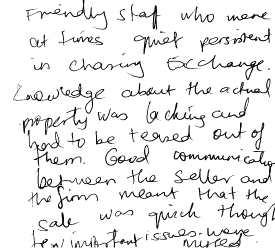 Friendly staff who were
at times quiet persistent
in chasing Exchange.
Knowledge about the actual
property was lacking and
had to be teased out of
them. Good communicatio
between the seller and
the firm meant that the
sale was quick though
few important issues were
missed